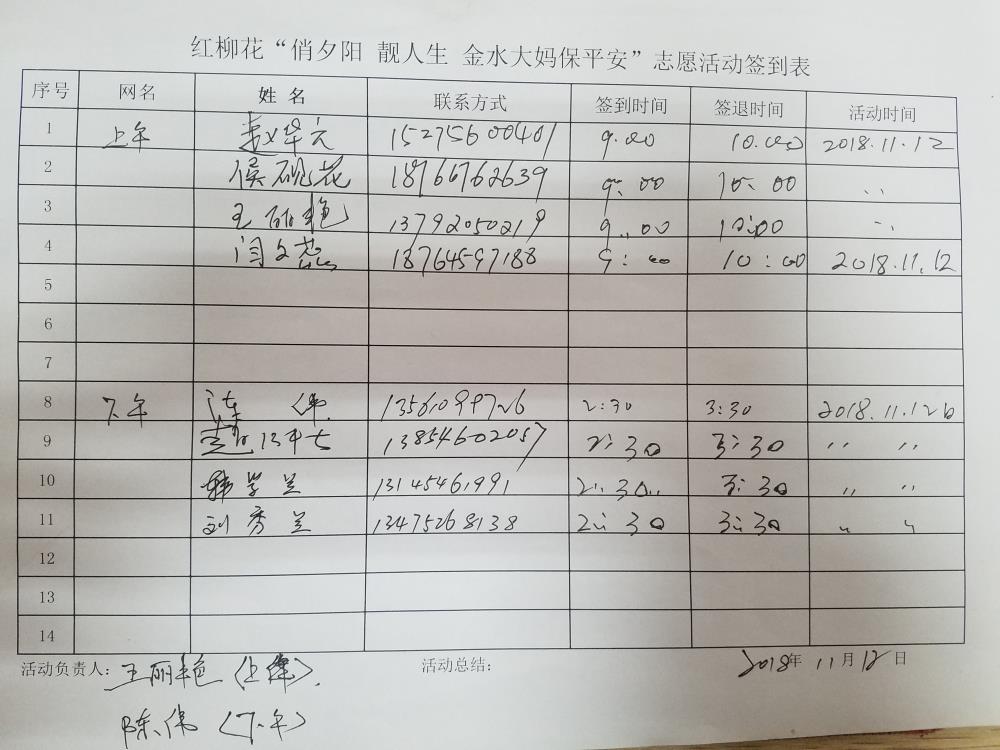 红柳花“俏夕阳 靓人生 金水大妈保平安”志愿活动签到表
序号 网名 姓名 联系方式 签到时间 签退时间 活动时间
1 上午 赵华元 15275600401 9.00 10.00 2018.11.12
2 侯砚花 18766762639 9:00 10:00 ,,
3 王丽艳 13792050219 9:00 10:00 ,,
4 闫文 18764597188 9:00 10:00 2018.11.12
5
6
7
8 下午 陈伟 2:30 3:30 2018.11.12
9 13854602057 2:30 3:30 〃 〃
10 韩学兰 13145461991 2:30 3:30 〃 〃
11 刘秀兰 13475268138 2:30 3:30 〃 〃
12
13
14
活动负责人:王丽艳(上午) 活动总结: 2018年11月12日
陈伟(下午)